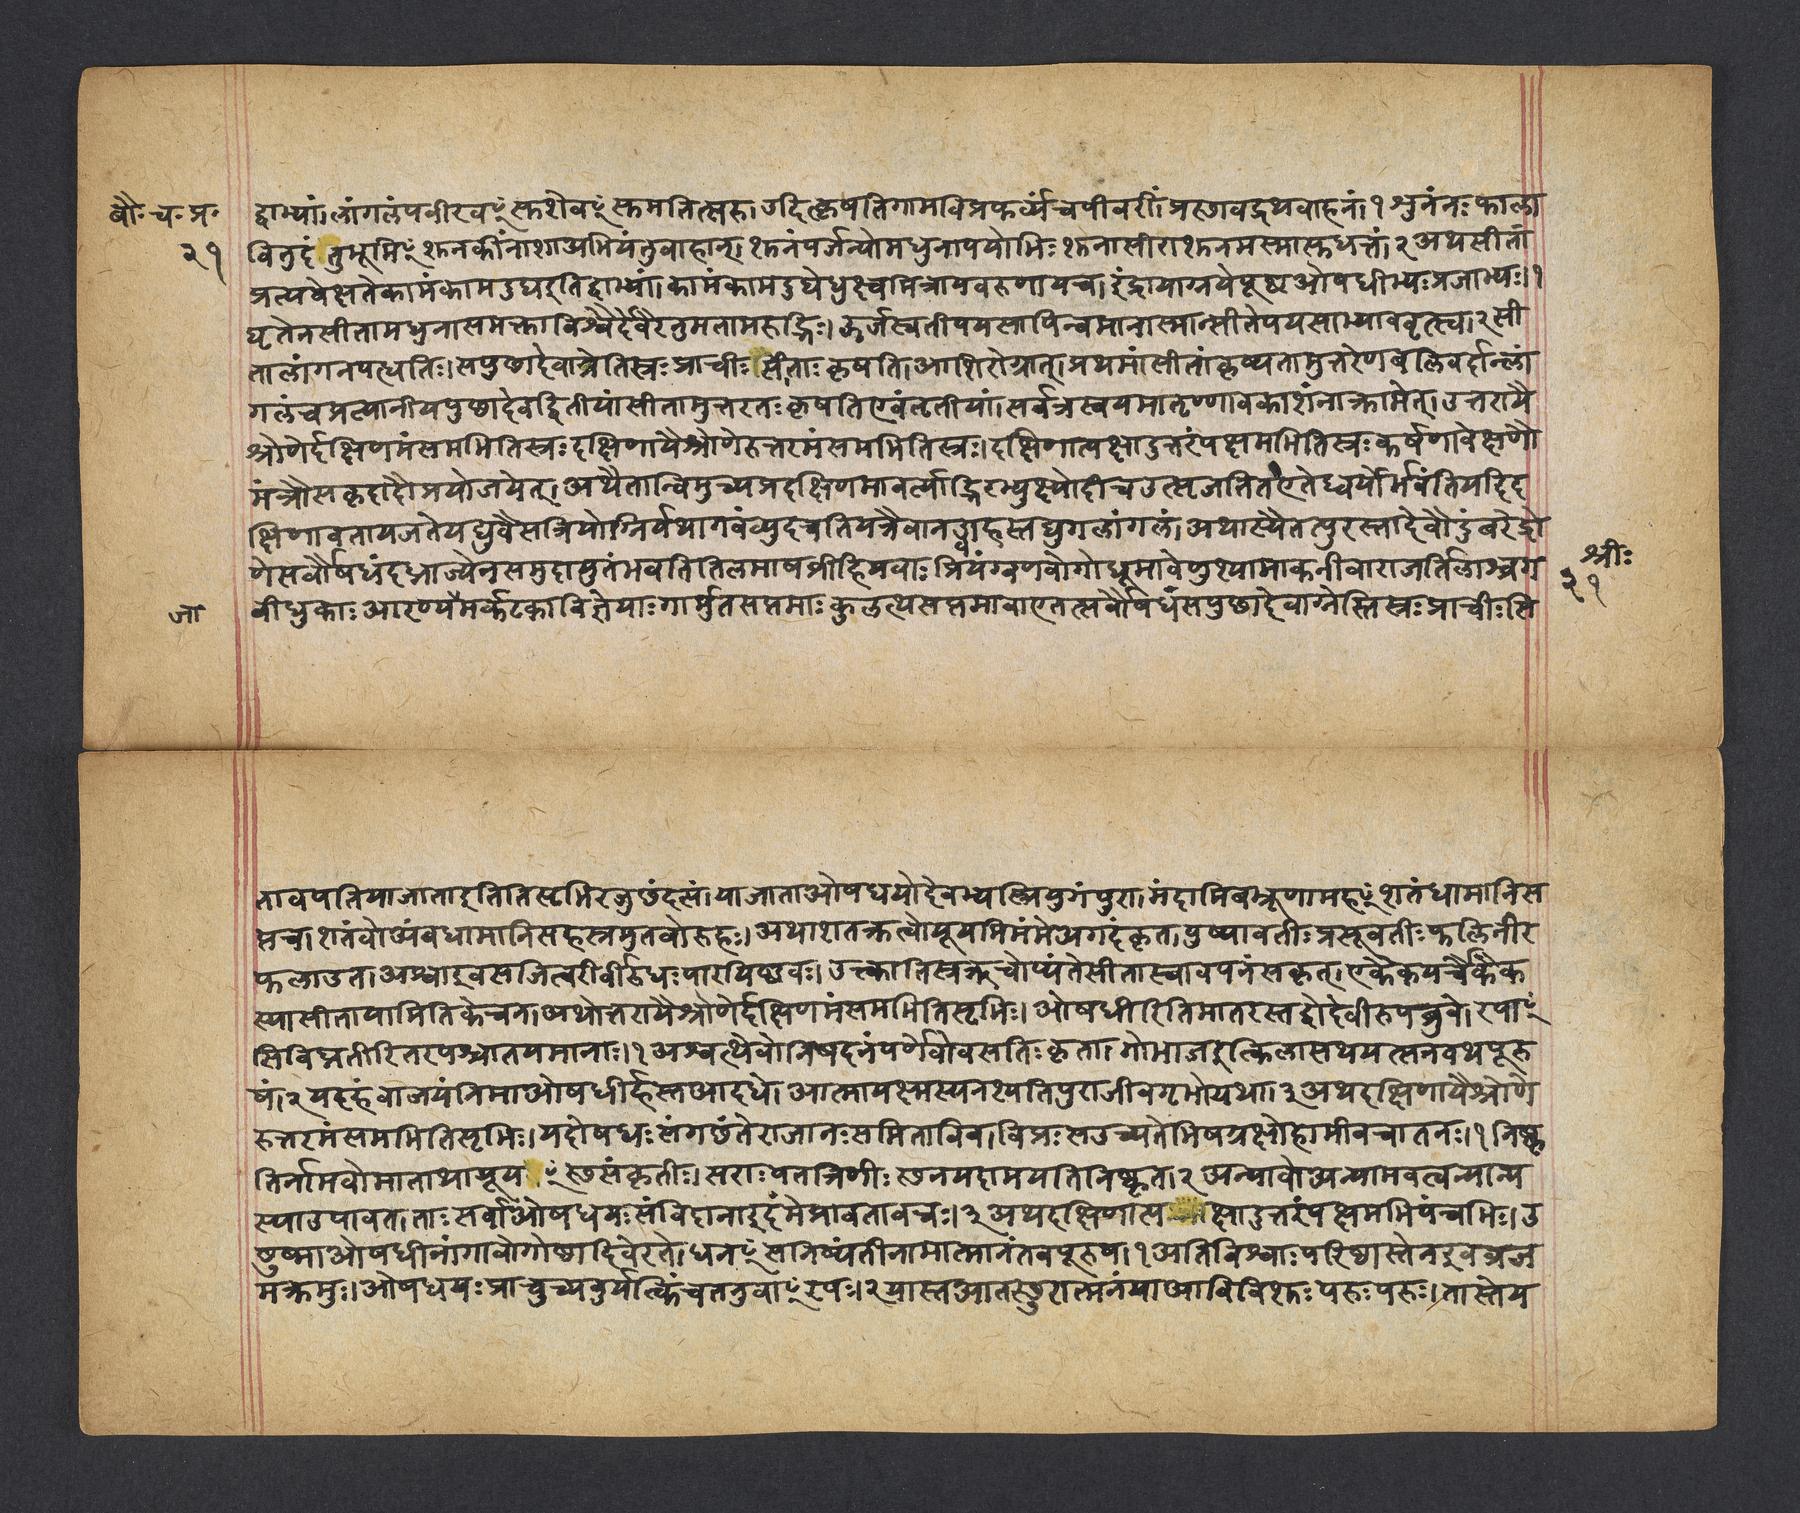 बौः चः प्रः
२१
द्वाभ्यां।लांगलंपवीरवꣳसुशेवꣳसुमतित्सरु।उदित्कृषतिगामविंप्रफर्व्यंचपीवरीं।प्रस्थावद्रथवाहनं।१शुनंनःफाला
वितुदंतुभूमिꣳशुनंकीनाशाअभियंतुवाहान्।शुनंपर्जन्योमधुनापयोभिःशुनासीराशुनमस्मासुधत्तं।२अथसीतां
प्रत्यवेक्षतेकामंकामदुघइतिद्वाभ्यां।कामंकामदुघेधुक्ष्वमित्रायवरुणायच।इंद्रायाग्नयेपूष्णओषधीभ्यःप्रजाभ्यः।१
घृतेनसीतामधुनासमक्ताविश्वैर्देवैरनुमतामरुद्भिः।ऊर्जस्वतीपयसापिन्वमानास्मान्सीतेपयसाभ्याववृत्स्व।२सी
तालांगनपत्यतिः।सपुछादेवाग्रेतिस्रःप्राचीःसीताःकृषति।आशिरोग्रात्।प्रथमांसीतांकृष्यतामुत्तरेणबलिवर्दान्लां
गलंचप्रत्यानीयपुछादेवद्वितीयांसीतामुत्तरतःकृषतिएवंतृतीयां।सर्वत्रस्वयमातृण्णावकाशंनाक्रामेत्।उत्तरायै
श्रोणेर्दक्षिणमंसमभितिस्रःदक्षिणायैश्रोणेरुत्तरमंसमभितिस्रः।दक्षिणात्पक्षादुत्तरंपक्षमभितिस्रःकर्षणावेक्षणौ
मंत्रौसकृदादौप्रयोजयेत्।अथैतान्विमुच्यप्रदक्षिणमावर्त्याद्भिरभ्युक्ष्योदीचउत्सृजतितएतेध्वर्योर्भवंतियदिद
क्षिणावतायजतेयद्युवैसत्रियोग्निर्यथागवंव्युदचतियत्रैवानड्वाहस्तद्युगलांगलं।अथास्यैतत्पुरस्तादेवौदुंबरेद्रो
णेसर्वौषधंदध्नाज्येनसमुदायुतंभवतितिलमाषव्रीहियवाःप्रियंग्वणवोगोधूमावेणुश्यामाकनीवाराजर्तिलाश्चग
श्रीः
२१
जा
वीधुकाःआरण्यमर्कटकाविज्ञेयाःगार्मुतसप्तमाःकुलत्थसप्तमावाएतत्सर्वौषधंसपुछादेवाग्नेस्तिस्रःप्राचीःसि
तावपतियाजाताइतितिसृभिरनुछंदसं।याजाताओषधयोदेवेभ्यस्त्रियुगंपुरा।मंदामिबभ्रूणामहꣳशतंधामानिस
प्तच।शतंवोअंबधामानिसहस्रमुतवोरुहः।अथाशतक्रत्वोयूयमिमंमेअगदंकृत।पुष्पावतीःप्रसूवतीःफलिनीर
फलाउत।अश्वाइवसजित्वरीर्वीरुधःपारयिष्णवः।उक्तातिस्रऋचोप्यंतेसीतास्वावपनंसकृत्।एकैकयचैकैक
स्यासीतायामितिकेचन।अथोत्तरायैश्रोणेर्दक्षिणमंसमभितिसृभिः।ओषधीरितिमातरस्तद्वोदेवीरुपब्रुवे।रपाꣳ
सिविघ्नतीरितरपश्चातयमानाः।१अश्वत्थेवोनिषदनंपर्णेवोवसतिःकृता।गोभाजइत्किलासथयत्सनवथपूरु
षं।२यदहंवाजयंनिमाओषधीर्हस्तआदधे।आत्मायक्ष्मस्यनश्यतिपुराजीवगृभोयथा।३अथदक्षिणायैश्रोणे
रुत्तरमंसमभितिसृभिः।यदोषधयःसंगछंतेराजानःसमिताविव।विप्रःसउच्यतेभिषग्रक्षोहामीवचातनः।१निष्कृ
तिर्नामवोमाताथायूयꣳस्थसंकृतीः।सराःपतत्रिणीःस्थनयदामयतिनिष्कृत।२अन्यावोअन्यामवत्वन्यान्य
स्याउपावत।ताःसर्वाओषधयःसंविदानाइदंमेप्रावतावचः।३अथदक्षिणात्पक्षादुत्तरंपक्षमभिपंचभिः।उ
छुष्माओषधीनांगावोगोष्ठादिवेरते।धनꣳसनिष्यंतीनामात्मानंतवपूरुष।१अतिविश्वाःपरिष्ठास्तेनइवव्रज
मक्रमुः।ओषधयःप्राचुच्यवुर्यत्किंचतनुवाꣳरपः।२यास्तआतस्थुरात्मानंयाआविविशुःपरुःपरुः।तास्तेय